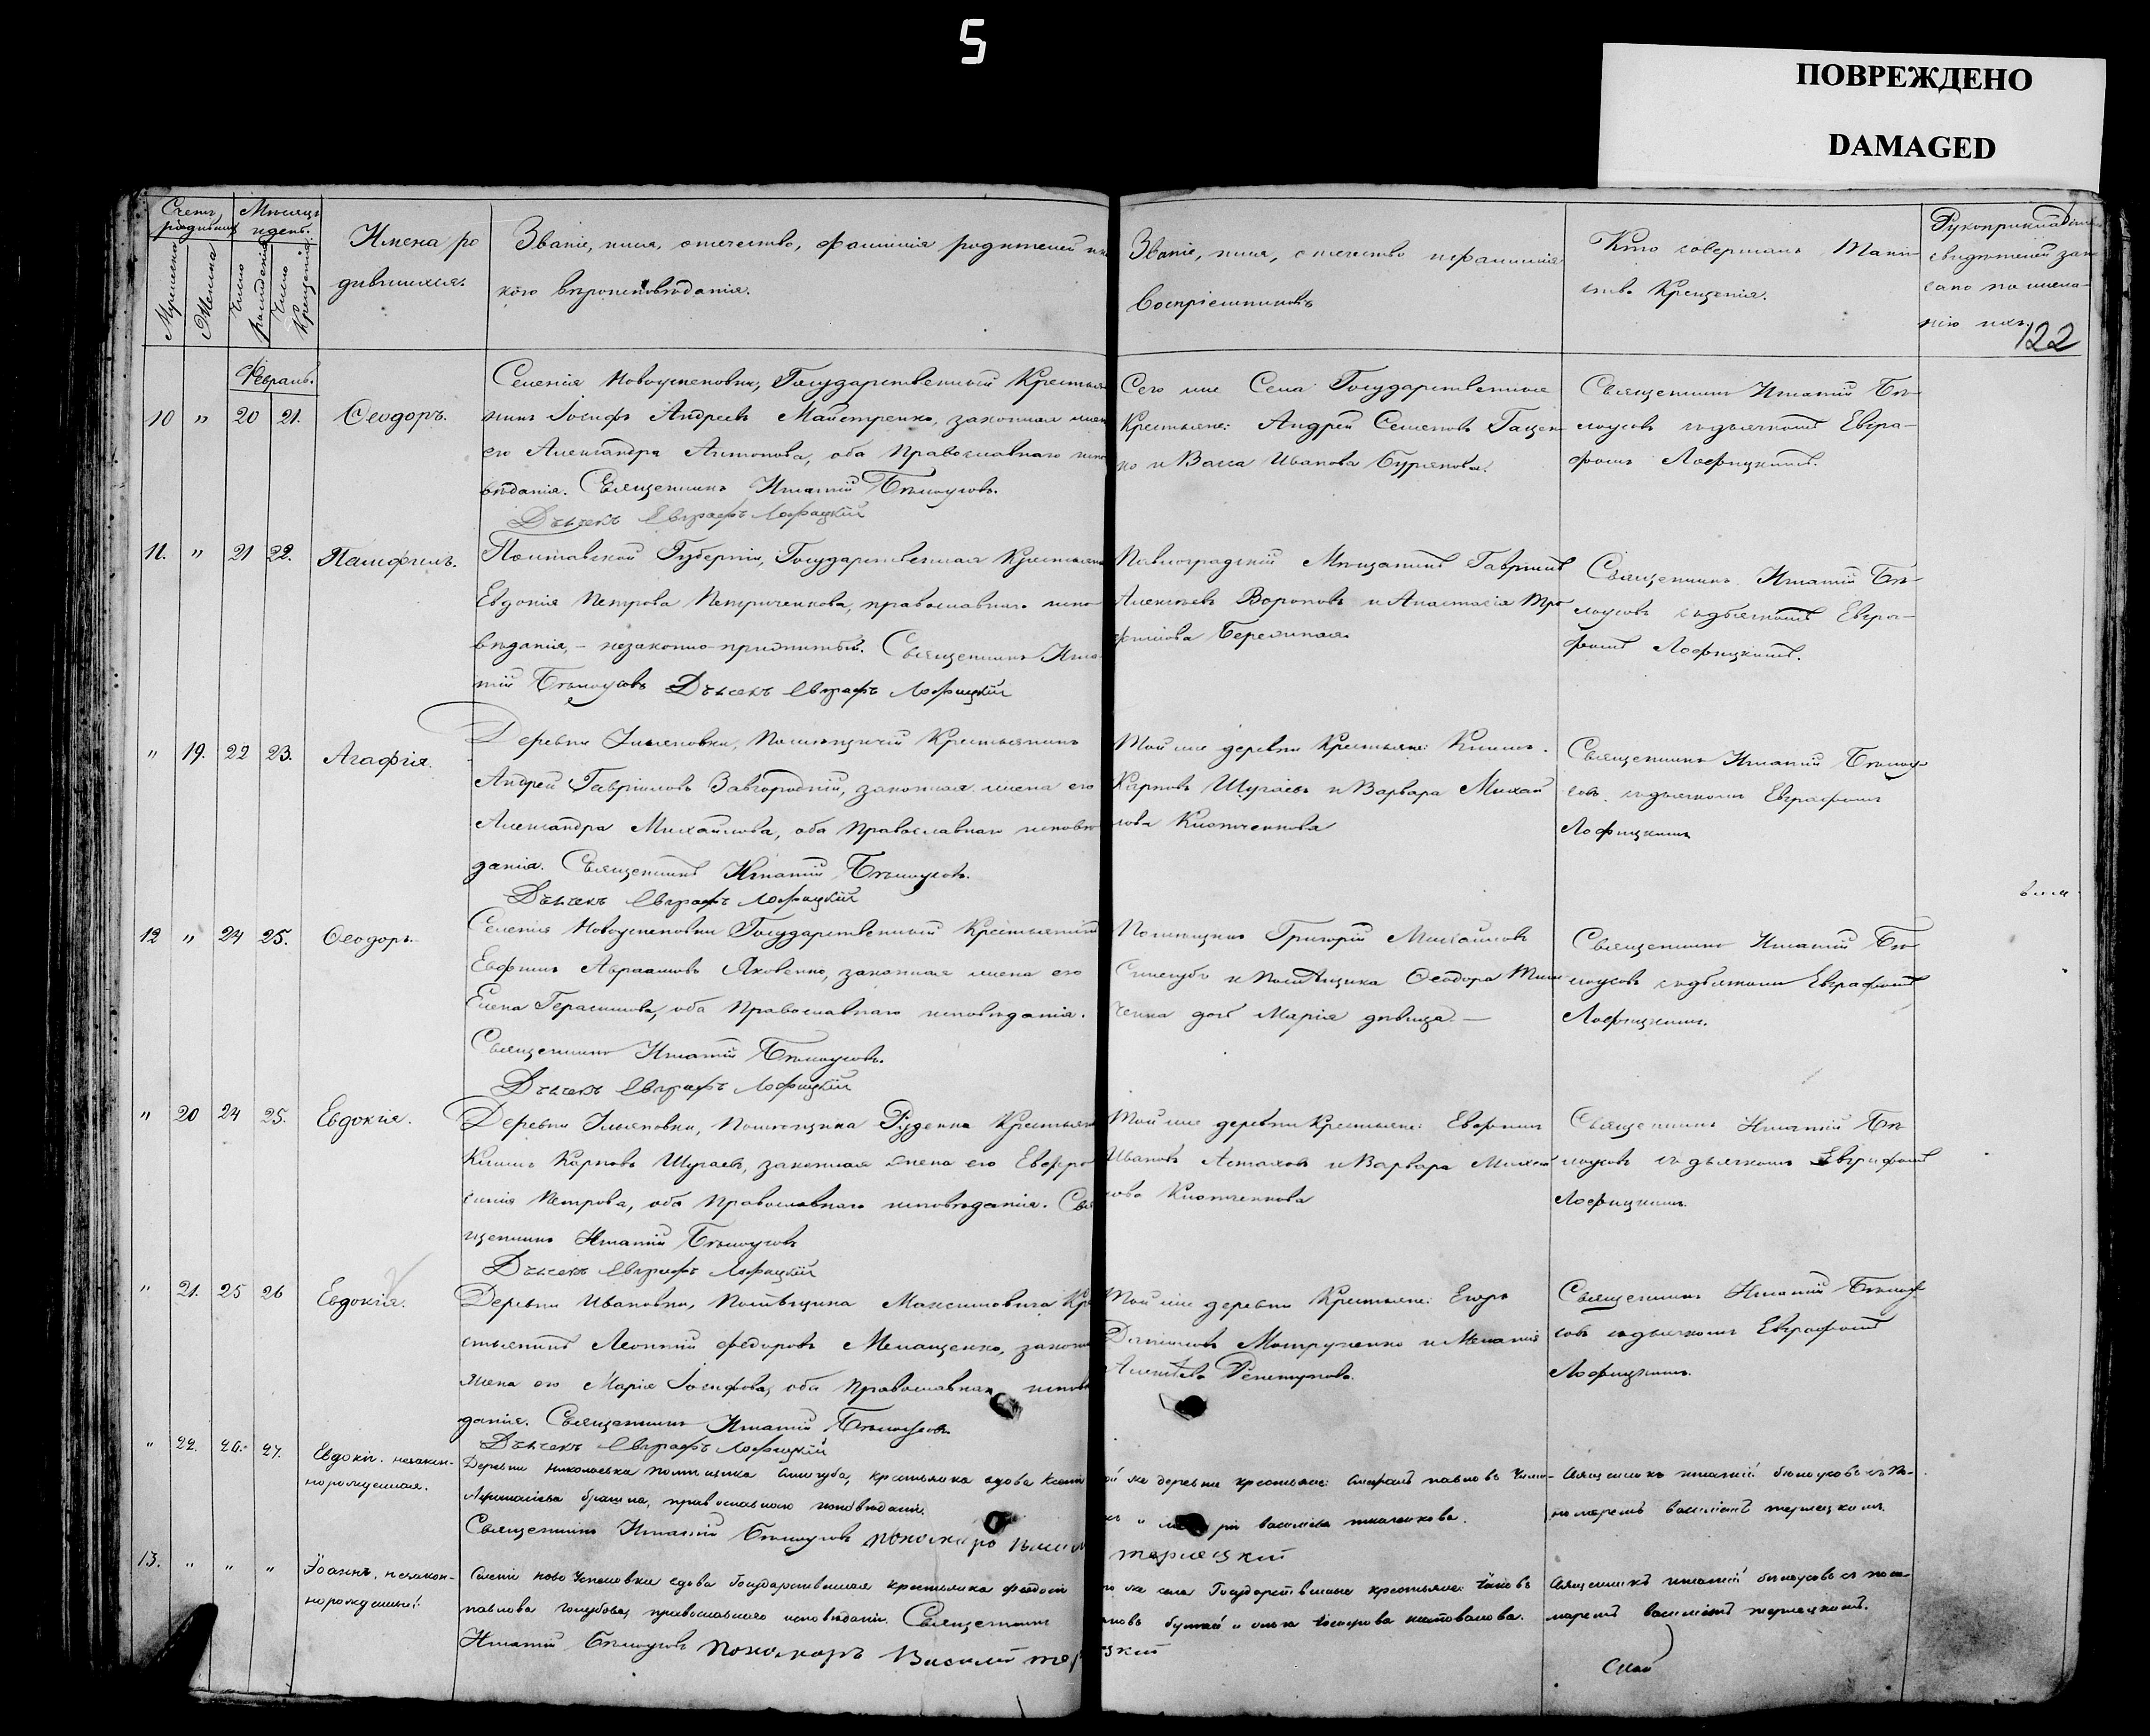 5
ПОВРЕЖДЕНО
DAMAGED
Счетъ родившихся
Мѣсяцъ и день.
Мужеска
Женска
Число рожденія
Число Крещенія.
Имена ро
дившихся.
Званіе, имя, отечество, фамилія родителей и ка
кого вѣроисповѣданія.
Званіе, имя, отечество и фамилія
Воспріемниковъ
Кто совершалъ Таин-
ство Крещенія.
Рукоприкладство
свидѣтелей запи
сано по жела-
нію ихъ.
122
Февраль.
10 " 20 21. Ѳеодоръ.
Селенія Новоуспеновки, Государственный Крестья
нинъ Іосифъ Андреевъ Майстренко, законная жена
его Александра Антонова, оба Православнаго испо
вѣданія. Священникъ Игнатій Бѣлоусовъ.
Дьячекъ Евграфъ Лофицкій
Сего же Села Государственные
Крестьяне: Андрей Семеновъ Гащен
ко и Васса Иванова Бурякова.
Священникъ Игнатій Бѣ-
лоусовъ съ дьячкомъ Евгра-
фомъ Лофицкимъ.
11. " 21 22. Памфилъ.
Полтавской Губерніи, Государственная Крестьянка
Евдокія Петрова Петриченкова, православнаго испо-
вѣданія, - незаконно прижитый. Священникъ Игна
тій Бѣлоусовъ Дьячекъ Евграфъ Лофицкій
Павлоградскій Мѣщанинъ Гавріилъ
Алексѣевъ Вороновъ и Анастасія Тро
фимова
Священникъ Игнатій Бѣ-
лоусовъ съ дьячкомъ Евгра-
фомъ Лофицкимъ.
" 19. 22 23. Агафія.
Деревни Ульяновки, Помѣщичій Крестьянинъ
Андрей Гавріиловъ Завгородній, законная жена его
Александра Михайлова, оба Православнаго исповѣ
данія. Священникъ Игнатій Бѣлоусовъ.
Дьячекъ Евграфъ Лофицкій
Той же деревни Крестьяне: Климъ
Карповъ Шугаевъ и Варвара Михай
лова
Священникъ Игнатій Бѣлоу-
совъ съ дьячкомъ Евграфомъ
Лофицкимъ
12 " 24 25. Ѳеодоръ.
Селенія Новоуспеновки Государственный Крестьянинъ
Евфимъ Авраамовъ Яковенко, законная жена его
Елена Герасимова, оба Православнаго исповѣданія.
Священникъ Игнатій Бѣлоусовъ.
Дьячекъ Евграфъ Лофицкій
Помѣщикъ Григорій Михайловъ
Синегубъ и Помѣщика Ѳеодора Тим
ченка дочь Марія дѣвица.—
Священникъ Игнатій Бѣ-
лоусовъ съ дьячкомъ Евграфомъ
Лофицкимъ.
" 20 24 25. Евдокія.
Деревни Ульяновки, Помѣщика Руденка Крестьян
Климъ Карповъ Шугаевъ, законная жена его Евфро
синія Петрова, оба Православнаго исповѣданія. Свя
щенникъ Игнатій Бѣлоусовъ
Дьячекъ Евграфъ Лофицкій
Той же деревни Крестьяне: Евфимъ
Ивановъ Астаховъ и Варвара Михай
лова
Священникъ Игнатій Бѣ
лоусовъ съ дьячкомъ Евграфомъ
Лофицкимъ.
" 21. 25 26 Евдокія.
Деревни Ивановки, Помѣщика Максимовича Кре
стьянинъ Леонтій Федоровъ Мелащенко, законная
жена его Марія Іосифова, оба Православнаго исповѣ
данія. Священникъ Игнатій Бѣлоусовъ
Дьячекъ Евграфъ Лофицкій
Той же деревни Крестьяне: Егоръ
Даниловъ и Меланія
Алексѣева Репетунова.
Священникъ Игнатій Бѣлоу
совъ съ дьячкомъ Евграфомъ
Лофицкимъ.
" 22. 26. 27. Евдокія. незакон-
норожденная.
Деревни Николаевка помѣщика Синегуба, крестьянка вдова
православнаго исповѣданія.
Священникъ Игнатій Бѣлоусовъ пономарь Василій
ой же деревни крестьяне: павловъ
василіева
терлецкій
Священникъ игнатій бѣлоусовъ съ по-
номаремъ василіемъ терлецкимъ.
13. " " " Іоаннъ. незакон-
норожденный.
Селенія Ново Успеновки вдова Государственная крестьянка федосія
павлова голубова, православнаго исповѣданія. Священникъ
Игнатій Бѣлоусовъ пономарь Василій тер
го же села Государственные крестьяне: Яковъ
и
цкій
Священникъ игнатій бѣлоусовъ съ поно-
маремъ василіемъ терлецкимъ.